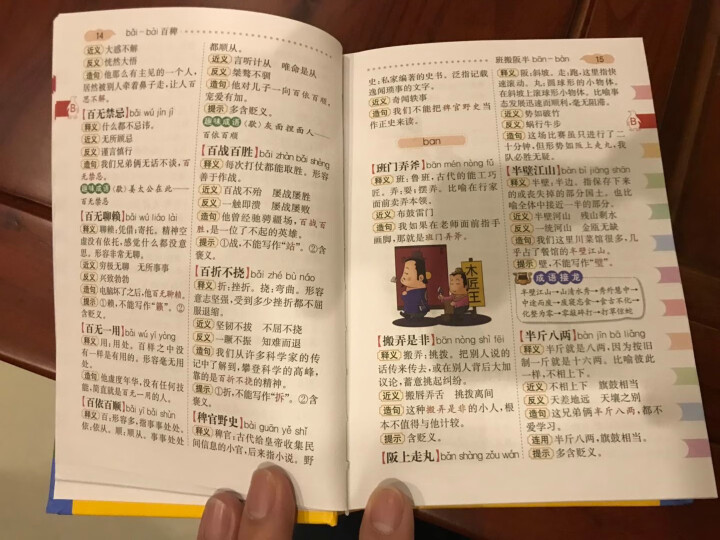 14 bǎi-bài 百稗
近义 大惑不解
反义 恍然大悟
造句 他那么有主见的一个人,
居然被别人牵着鼻子走,让人百
思不解。
B
【百无禁忌】bǎi wú jìn jì
释义 什么都不忌讳。
近义 无所顾忌
反义 谨言慎行
造句 我们兄弟俩无话不谈,百
无禁忌。
趣味成语 (歇)姜太公在此——
百无禁忌
【百无聊赖】bǎi wú liáo lài
释义 聊赖:凭借;寄托。精神空
虚没有依托,感觉什么都没意
思。形容非常无聊。
近义 穷极无聊 无所事事
反义 兴致勃勃
造句 电脑坏了之后,他百无聊赖。
提示 ①赖,不能写作“籁”。②含
贬义。
【百无一用】bǎi wú yī yòng
释义 用:用处。百样之中没
有一样是有用的。形容毫无用
处。
造句 他虚度年华,没有任何技
能,简直就是百无一用的人。
【百依百顺】bǎi yī bǎi shùn
释义 百:形容多,指事事处处。
依:依从。顺:顺从。事事处处
都顺从。
近义 言听计从 唯命是从
反义 桀骜不驯
造句 他对儿子一向百依百顺,
宠爱有加。
提示 多含贬义。
趣味成语 (歇)灰面捏面人——
百依百顺
【百战百胜】bǎi zhàn bǎi shèng
释义 每次打仗都能取胜。形容
善于作战。
近义 百战不殆 屡战屡胜
反义 一触即溃 屡战屡败
造句 他曾经驰骋疆场,百战百
胜,是一位了不起的英雄。
提示 ①战,不能写作“站”。②含
褒义。
【百折不挠】bǎi zhé bù náo
释义 折:挫折。挠:弯曲。形容
意志坚强,受到多少挫折都不屈
服退缩。
近义 坚韧不拔 不屈不挠
反义 一蹶不振 知难而退
造句 我们从许多科学家的传
记中了解到,攀登科学的高峰,
靠的是百折不挠的精神。
提示 ①折,不能写作“拆”。②含
褒义。
【稗官野史】bài guān yě shǐ
释义 稗官:古代给皇帝收集民
间信息的小官,后来指小说。野
班搬阪半 bān-bàn 15
史:私家编著的史书。泛指记载
逸闻琐事的文字。
近义 奇闻轶事
造句 我们不能把稗官野史当
作正史来读。
ban
【班门弄斧】bān mén nòng fǔ
释义 班:鲁班,古代的能工巧
匠。弄:耍;摆弄。比喻在行家
面前卖弄本领。
近义 布鼓雷门
造句 我如果在老师面前指手
画脚,那就是班门弄斧。
木匠王
【搬弄是非】bān nòng shì fēi
释义 搬弄:挑拨。把别人说的
话传来传去,或在别人背后大加
议论,蓄意挑起纠纷。
近义 搬唇弄舌 挑拨离间
造句 这种搬弄是非的小人,根
本不值得与他计较。
提示 含贬义。
【阪上走丸】bǎn shàng zǒu wán
释义 阪:斜坡。走:跑,这里指快
速滚动。丸:圆球形的小物体。
在斜坡上滚球形小物体。比喻事
态发展迅速而顺利,毫无阻滞。
近义 势如破竹
反义 蜗行牛步
造句 这场比赛虽只进行了二
十分钟,但形势如阪上走丸,我
队必胜无疑。
B
【半壁江山】bàn bì jiāng shān
释义 半壁:半边。指保存下来
的或丧失掉的部分国土。也比
喻全体中接近一半的部分。
近义 半壁河山 残山剩水
反义 一统河山 金瓯无缺
造句 我们这川菜馆很多,几
乎占了餐馆的半壁江山。
提示 壁,不能写作“璧”。
成语接龙
半壁江山→山清水秀→秀外慧中→
中途而废→废寝忘食→食古不化→
化整为零→零敲碎打→打草惊蛇
【半斤八两】bàn jīn bā liǎng
释义 半斤就是八两,因为按旧
制一斤就是十六两。比喻彼此
一样,不相上下。
近义 不相上下 旗鼓相当
反义 天差地远 天壤之别
造句 这兄弟俩半斤八两,都不
爱学习。
连用 半斤八两,旗鼓相当。
提示 多含贬义。